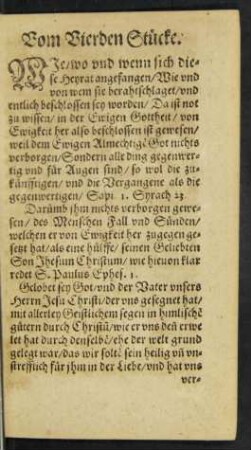 Vom Vierden Stücke.
WJe/wo vnd wenn sich die-
se Heyrat angefangen/Wie vnd
von wem sie berahtschlaget/vnd
entlich beschlossen sey worden/ Da ist not
zu wissen/ in der Ewigen Gottheit/ von
Ewigkeit her also beschlossen ist gewesen/
weil dem Ewigen Almechtigē Got nichts
verborgen/Sondern alle ding gegenwer-
tig vnd für Augen sind/ so wol die zu-
künfftigen/ vnd die Vergangene als die
gegenwertigen/ Sapi. 1. Syrach 23.
Darumb jhm nichts verborgen gewe-
sen/ des Menschen Fall vnd Sünden/
welchen er von Ewigkeit her zugegen ge-
setzt hat/als eine hülffe/ seinen Geliebten
Son Jhesum Christum/ wie hieuon klar
redet S. Paulus Ephes. 1.
Gelobet sey Got/vnd der Vater vnsers
Herrn Jesu Christi/der vns gesegnet hat/
mit allerley Geistlichem segen in himlischē
gütern durch Christū/wie er vns deñ erwe
let hat durch denselbē/ehe der welt grund
gelegt war/das wir soltē sein heilig vñ vn-
strefflich für jhm in der Liebe/vnd hat vns
ver-